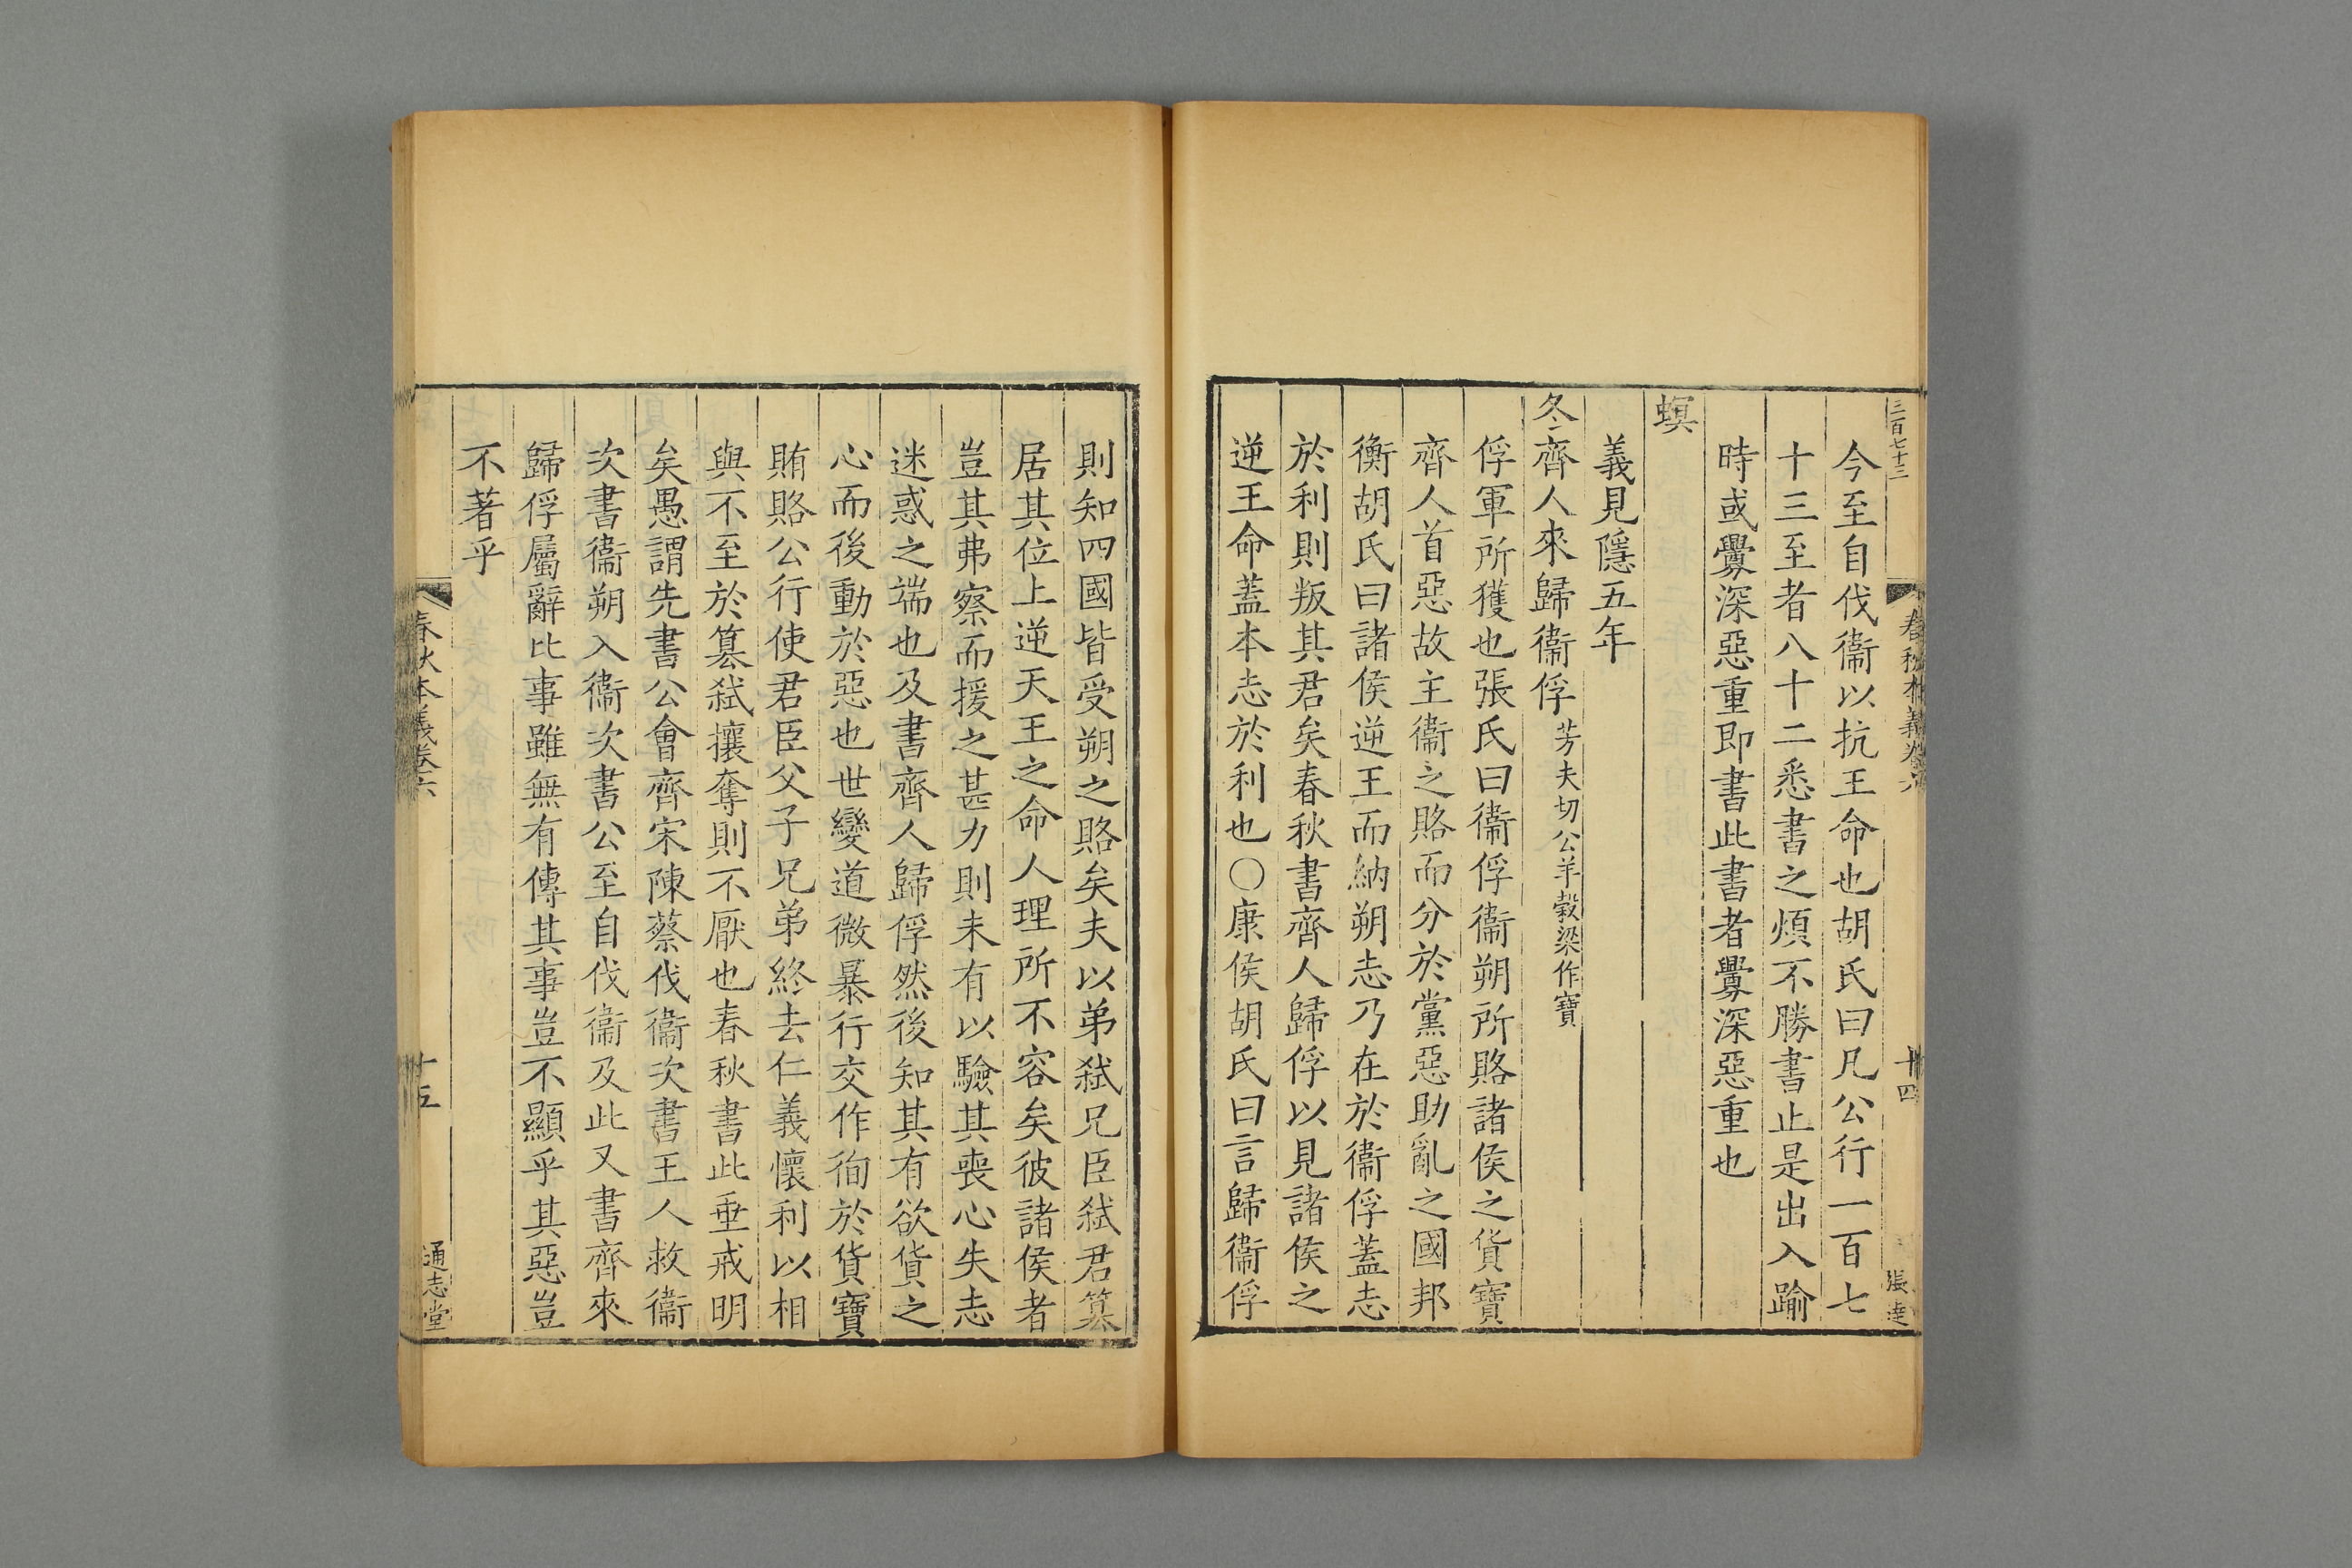 三百七十三
春秋本義卷六
十四
張達
今至自伐衞以抗王命也胡氏曰凡公行一百七
十三至者八十二悉書之煩不勝書止是出入踰
時或釁深惡重即書此書者釁深惡重也
螟
義見隱五年
冬齊人來歸衞俘芳夫切公羊穀梁作寶
俘軍所獲也張氏曰衞俘衞朔所賂諸侯之貨寶
齊人首惡故主衞之賂而分於黨惡助亂之國邦
衡胡氏曰諸侯逆王而納朔志乃在於衞俘蓋志
於利則叛其君矣春秋書齊人歸俘以見諸侯之
逆王命蓋本志於利也○康侯胡氏曰言歸衞俘
則知四國皆受朔之賂矣夫以弟弑兄臣弑君篡
居其位上逆天王之命人理所不容矣彼諸侯者
豈其弗察而援之甚力則未有以驗其喪心失志
迷惑之端也及書齊人歸俘然後知其有欲貨之
心而後動於惡也世變道微暴行交作徇於貨寶
賄賂公行使君臣父子兄弟終去仁義懷利以相
與不至於篡弑攘奪則不厭也春秋書此垂戒明
矣愚謂先書公會齊宋陳蔡伐衞次書王人救衞
次書衞朔入衞次書公至自伐衞及此又書齊來
歸俘屬辭比事雖無有傳其事豈不顯乎其惡豈
不著乎
春秋本義卷六
十五
通志堂